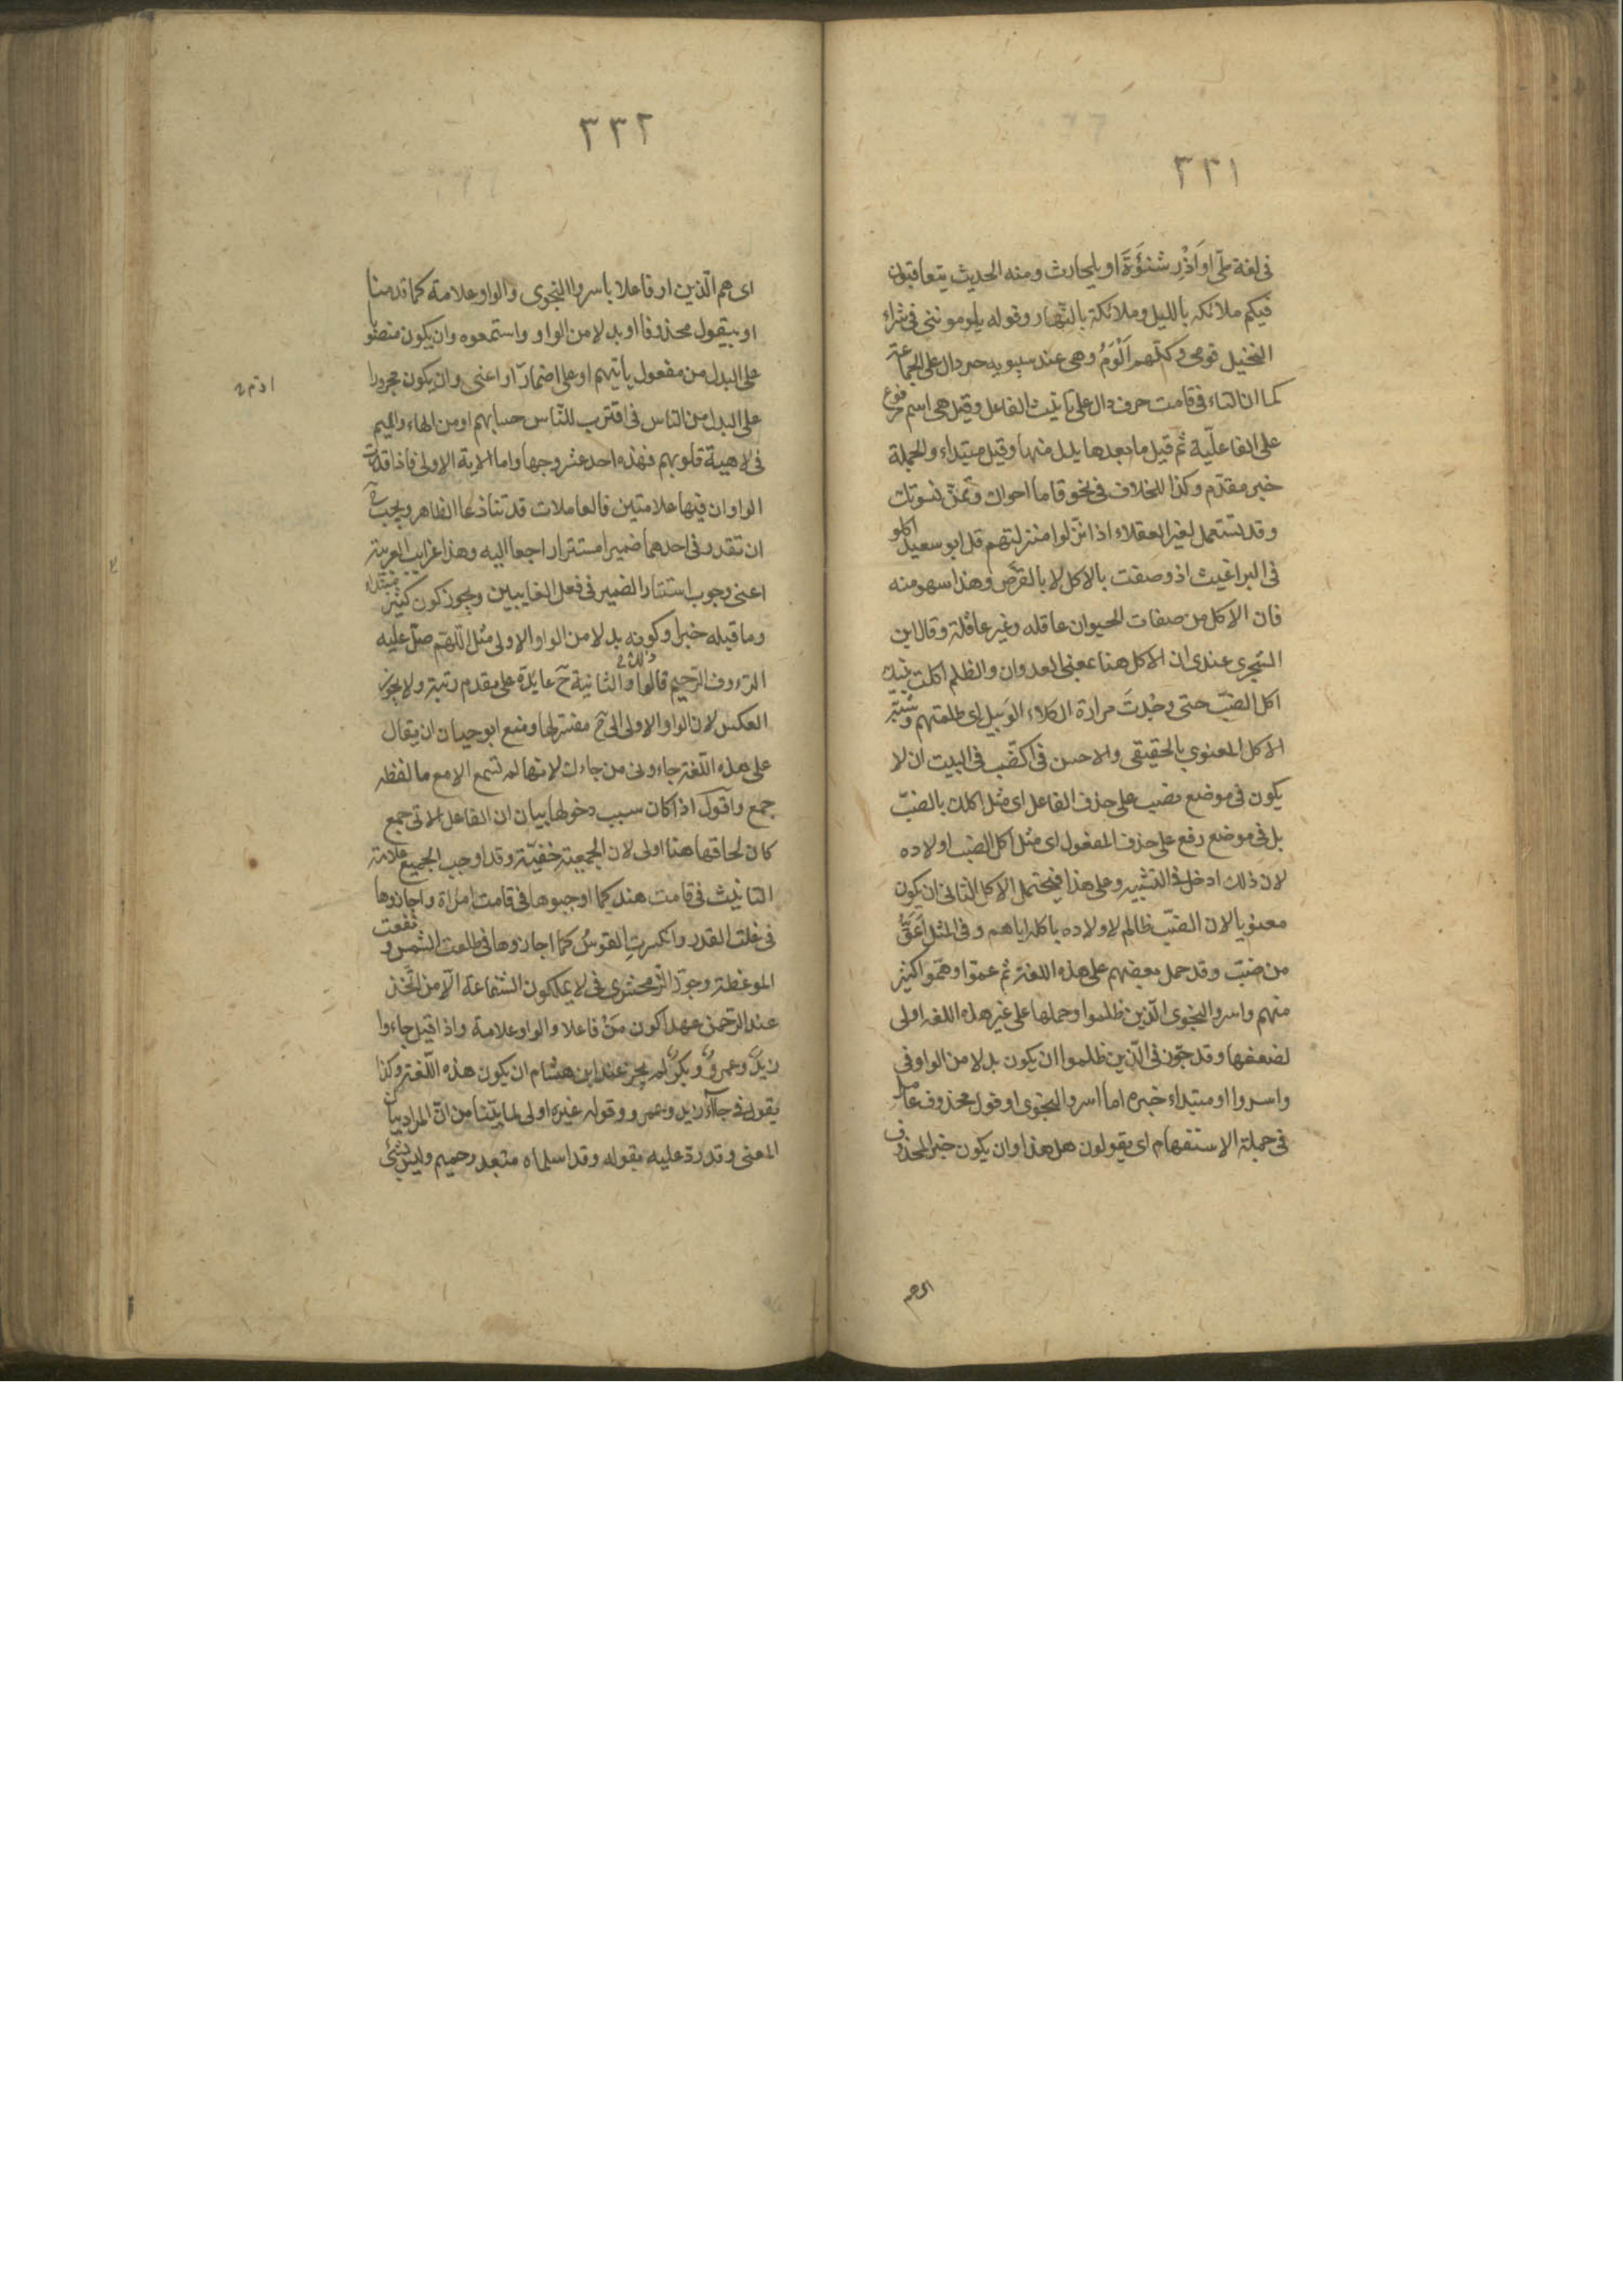 ٣٣١
فى لغة طىّ او اَزْدِ شَنُؤَةَ او بلحارث ومنه الحديث يتعاقبون
فيكم ملائكه بالليل وملائكة بالنّهار وقوله يلومونني فى شراء
النخيل قومى وكلّهم اَلْوَمُ وهى عند سيبويه حرف دال على الجماعة
كما ان التاء فى قامت حرف دال على تانيث الفاعل وقيل هى اسم مرفوع
على الفاعليّة ثم قيل ما بعدها بدل منها وقيل مبتداء والجملة
خبر مقدّم وكذا الخلاف فى نحو قاما اخواك وقمنَ نسوتك
وقد تستعمل لغير العقلاء اذا نزّلوا منزلتهم قال ابو سعيد اكلو
فى البراغيث اذ وصفت بالاكل لا بالقرص وهذا سهو منه
فان الاكل من صفات الحيوان عاقله وغير عاقلة وقال ابن
الشجرى عندى ان الاكل هنا بمعنى العدوان والظلم اكلت بنيك
اكل الضبّ حتى وجْدتَ مرارة الكلاء الوَبيل اى ظلمتهم وشبّه
الاكل المعنوي بالحقيقى والاحسن فى اكل الضّب فى البيت ان لا
يكون فى موضع نصب على حذف الفاعل اى مثل اكلك بالضبّ
بل فى موضع رفع على حذف المفعول اى مثل اكل الضب اولاده
لان ذلك ادخل فى التشبيه وعلى هذا فيحتمل الاكل الثانى ان يكون
معنويا لان الضبّ ظالم لاولاده باكله اياهم وفى المثل اَعَقُّ
من ضبّ وقد حمل بعضهم على هذه اللغة ثم عموا وصمّوا كثير
منهم واسروا النجوى الّذين ظلموا وحملها على غير هذه اللغه اولى
لضعفها وقد جوّز فى الّذين ظلموا ان يكون بدلا من الواو فى
واسروا او مبتداء خبره اما اسروا النجوى او قول محذوف عامل
فى جملة الاستفهام اى يقولون هل هذا وان يكون خبر المحذوف
اى هم
٣٣٢
اى هم الّذين او فاعلا باسروا النجوى والواو علامة كما قدمنا
او بيقول محذوفا او بدلا من الواو واستمعوه وان يكون منصوبا
على البدل من مفعول ياتيهم او على اضمار اذمّ او اعنى وان يكون مجرورا
على البدل من الناس فى اقترب للنّاس حسابهم او من الهاء والميم
فى لاهية قلوبهم فهذه احد عشر وجها واما الاية الاولى فاذا قدرت
الواو ان فيها علامتين فالعاملان قد تنازعا الظاهر ويجب ح
ان تقدر فى احدهما ضميرا مستترا راجعا اليه وهذا غرايب العربية
اعنى وجوب استتار الضمير فى فعل الغايبين ويجوز كون كثير مبتداء
وما قبله خبرا وكونه بدلا من الواو الاولى مثل اللهّم صلّ عليه
الرءوف الرّحيم فالواو الثانية ح عايدة على مقدم رتبة ولا يجوز
العكس لان الواو الاولى الى ح مفسّر لها ومنع ابو حيان ان يقال
على هذه اللّغة جاءونى من جاءك لانها لم تسمع الا مع ما لفظه
جمع واقول اذا كان سبب دخولها بيان ان الفاعل الاتى جمع
كان لحاقها هنا اولى لان الجمعيّة خفيّة وقد اوجب الجميع علامة
التانيث فى قامت هند كما اوجبوها فى قامت امراة واجازوها
فى غلت القدر وانكسرت القوسُ كما اجازوها فى طلعت الشمس ونفعت
الموعظة وجوّز الزمخشرى فى لا يملكون الشفاعة الّا من اتّخذ
عند الرّحمن عهدا كون مَنْ فاعلا والواو علامة واذا قيل جاءوا
زيدٌ وعمروٌ وبكرٌ لم يجز عند ابن هشام ان يكون هذه اللّغة وكذا
يقول فى جاآ زيد وعمرو وقوله غيره اولى لما بيّنا من انّ المراد بيان
المعنى وقد ردّ عليه بقوله وقد اسلماه مبعد وحميم وليس بشئ
اذم